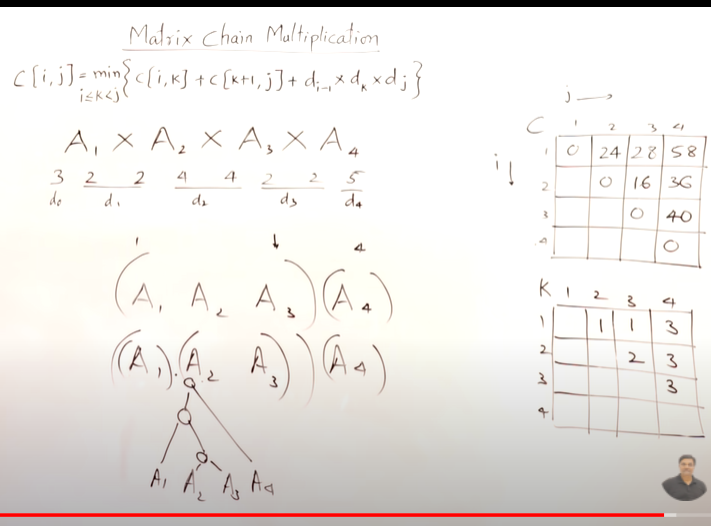 Matrix Chain Multiplication
C[i,j] = min { C[i,k] + C[k+1,j] + d i-1 × d k × d j }
i≤k<j
A1 × A2 × A3 × A4
3 2 2 4 4 2 2 5
d0 d1 d2 d3 d4
1 ↓ 4
(A1 A2 A3)(A4)
((A1).(A2 A3))(A4)
A1 A2 A3 A4
j →
C 1 2 3 4
i↓
1 0 24 28 58
2 0 16 36
3 0 40
4 0
K 1 2 3 4
1 1 1 3
2 2 3
3 3
4